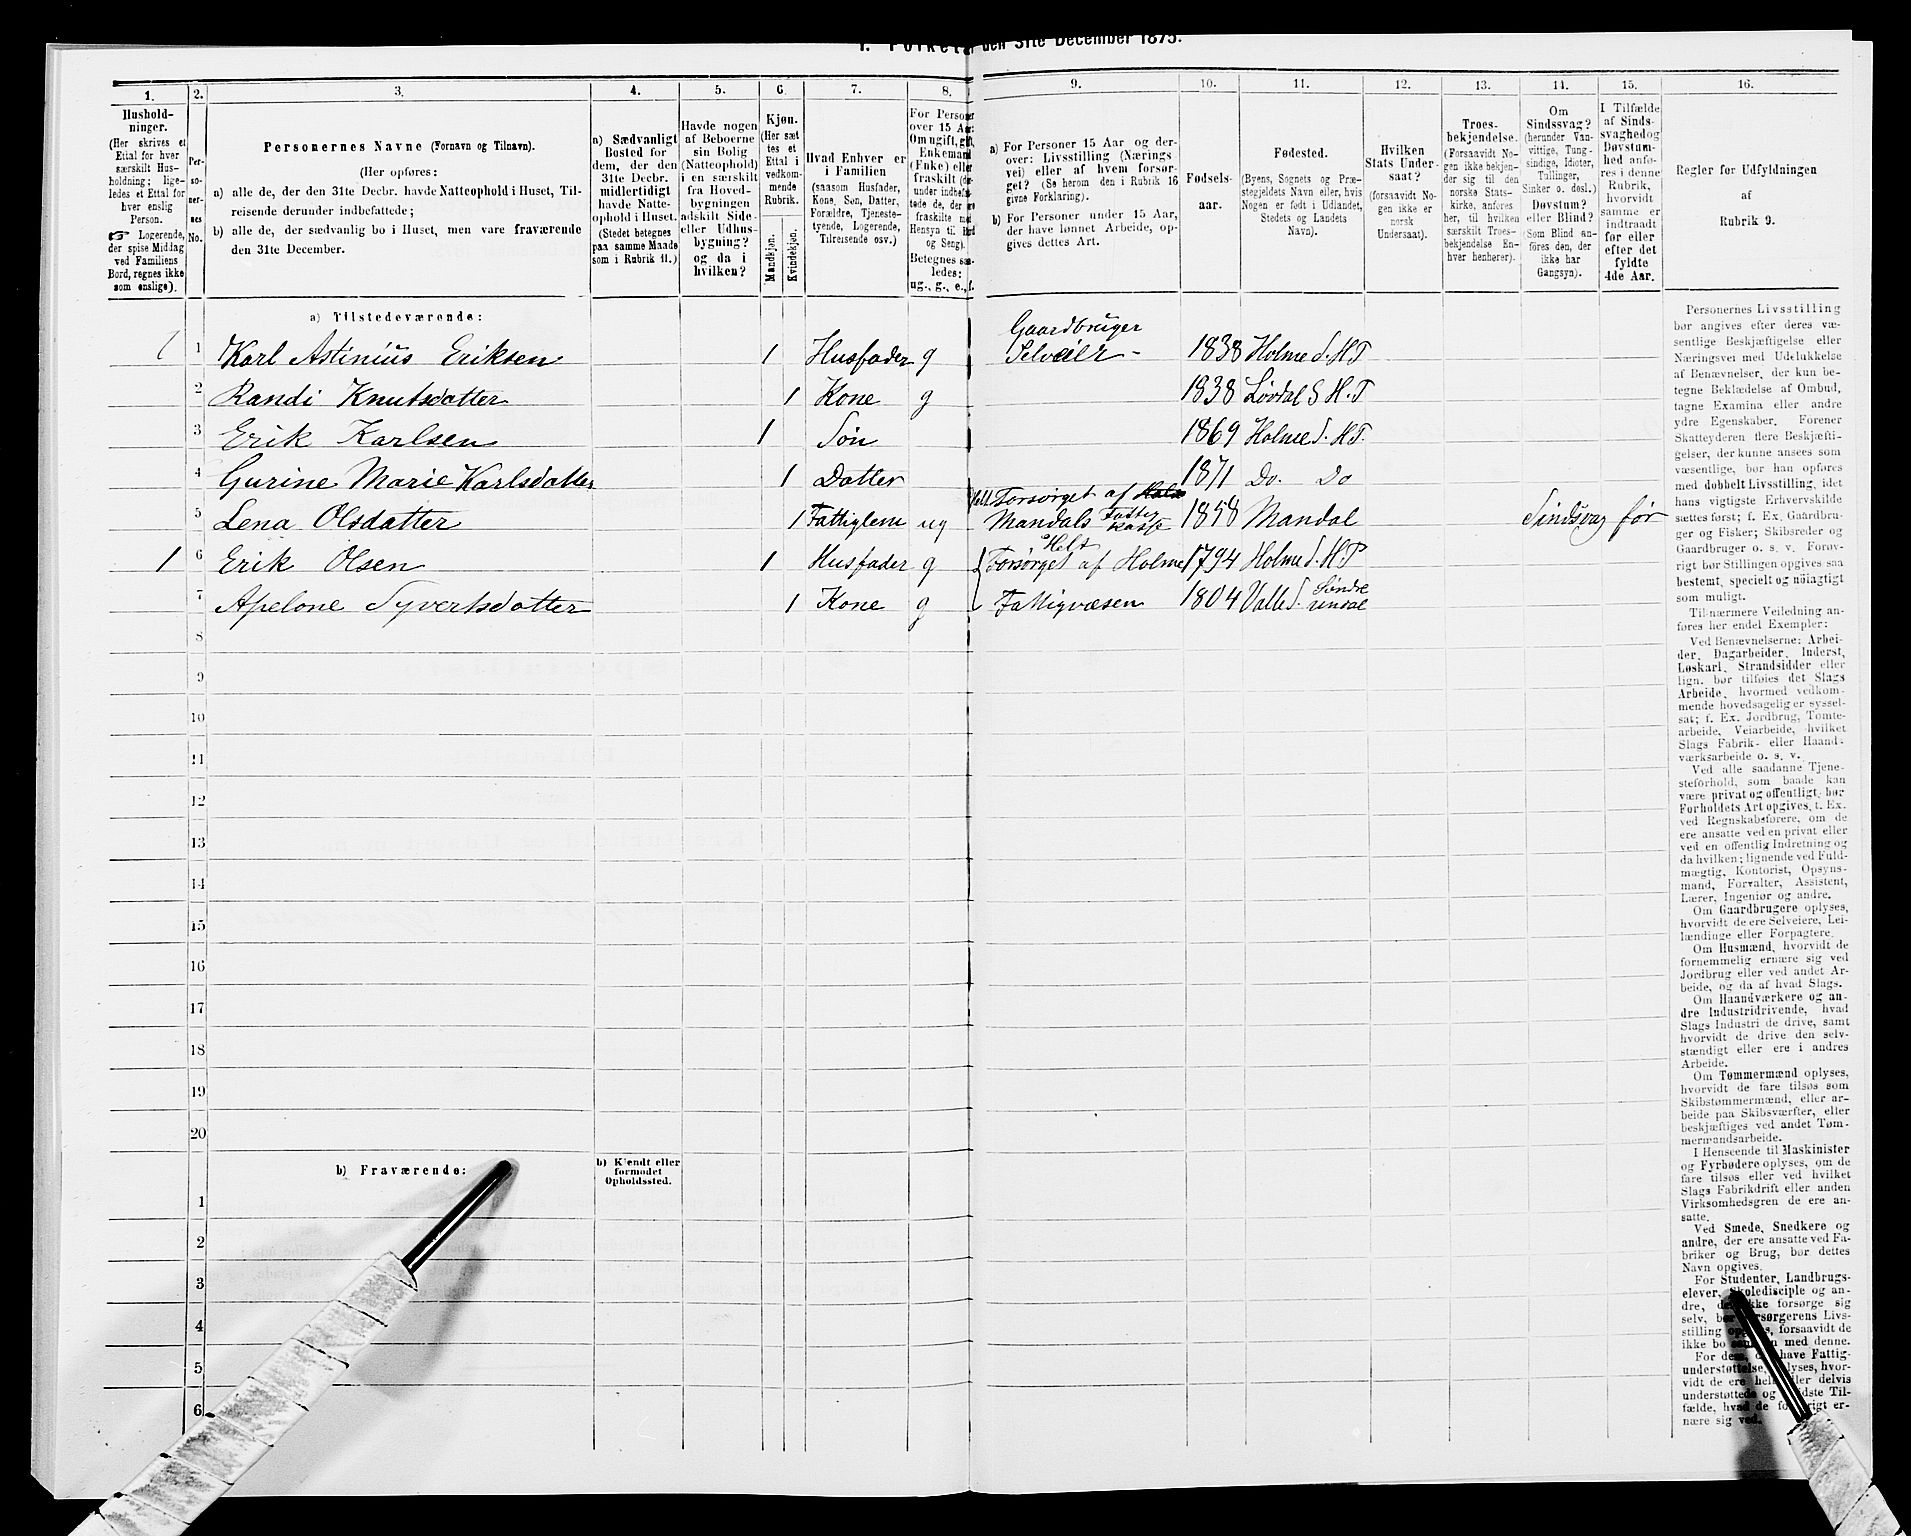 1. Folketal den 31te December 1875.
1. 2. 3. 4. 5. 6. 7. 8. 9. 10. 11. 12. 13. 14. 15. 16.
Hushold-
ninger.
(Her skrives et
Ettal for hver
særskilt Hus-
holdning; lige-
ledes et Ettal for
hver enslig
Person.
☞ Logerende,
der spise Middag
ved Familiens
Bord, regnes ikke
som enslige).
Per-
so-
ner-
nes
No.
Personernes Navne (Fornavn og Tilnavn).
(Her opføres:
a) alle de, der den 31te Decbr. havde Natteophold i Huset, Til-
reisende derunder indbefattede;
b) alle de, der sædvanlig bo i Huset, men vare fraværende
den 31te December.
a) Sædvanligt
Bosted for
dem, der den
31te Decbr.
midlertidigt
havde Natte-
ophold i Huset.
(Stedet betegnes
paa samme Maade
som i Rubrik 11.)
Havde nogen
af Beboerne
sin Bolig
(Natteophold)
i en særskilt
fra Hoved-
bygningen
adskilt Side-
eller Udhus-
bygning?
og da i
hvilken?
Kjøn.
(Her sæt
tes et
Ettal i
vedkom-
mende
Rubrik.
Mandkjøn.
Kvindekjøn.
Hvad Enhver er
i Familien
(saasom Husfader,
Kone, Søn, Datter,
Forældre, Tjeneste-
tyende, Logerende,
Tilreisende osv.)
For Personer
over 15 Aar:
Om ugift, gift,
Enkemand
(Enke) eller
fraskilt (der-
under indbefat-
tede de, der ere
fraskilte med
Hensyn til Bord
og Seng).
Betegnes saa-
ledes:
ug., g., e., f.
a) For Personer 15 Aar og der-
over: Livsstilling (Nærings
vei) eller af hvem forsør-
get? (Se herom den i Rubrik 16
givne Forklaring).
b) For Personer under 15 Aar,
der have lønnet Arbeide, op-
gives dettes Art.
Fødsels-
aar.
Fødested.
(Byens, Sognets og Præ-
stegjeldets Navn eller, hvis
Nogen er født i Udlandet,
Stedets og Landets
Navn).
Hvilken
Stats Under-
saat?
(forsaavidt No-
gen ikke er
norsk
Undersaat).
Troes-
bekjendelse.
(Forsaavidt No-
gen ikke bekjen-
der sig til den
norske Stats-
kirke, anføres
her, til hvilken
særskilt Troes-
bekjendelse En-
hver henhører).
Om
Sindssvag?
(herunder Van-
vittige, Tung-
sindige, Idioter,
Tullinger,
Sinker o. desl.)
Døvstum?
eller Blind?
(Som Blind an-
føres den, der
ikke har
Gangsyn).
I Tilfælde
af Sinds-
svaghedog
Døvstum-
hed anfø-
res i denne
Rubrik,
hvorvidt
samme er
indtraadt
før eller
efter det
fyldte
4de Aar.
Regler for Udfyldningen
af
Rubrik 9.
a) Tilstedeværende:
1 1 Karl Astinius Eriksen 1 Husfader g Gaardbruger Selveier - 1838 Holme S. H P
2 Randi Knutsdatter 1 Kone g 1838 Løvdal S H. P
3 Erik Karlsen 1 Søn 1869 Holme S. H P.
4 Gurine Marie Karlsdatter 1 Datter 1871 Do. Do
5 Lena Olsdatter 1 Fattiglem ug Helt Forsørget af Mandals Kasse 1858 Mandal Sindsvag før
1 6 Erik Olsen 1 Husfader g Helt Forsørget af Holme 1794 Holme S. H P
7 Apelone Syvertsdatter 1 Kone g Fattigvæsen 1804 Valle S. Søndre undal
8
9
10
11
12
13
14
15
16
17
18
19
20
b) Fraværende:
b) Kjendt eller
formodet
Opholdssted.
1
2
3
4
5
6
Personernes Livsstilling
bør angives efter deres væ-
sentlige Beskjæftigelse eller
Næringsvei med Udelukkelse
af Benævnelser, der kun be-
tegne Beklædelse af Ombud,
tagne Examina eller andre
ydre Egenskaber. Forener
Skatteyderen flere Beskjæfti-
gelser, der kunne ansees som
væsentlige, bør han opføres
med dobbelt Livsstilling, idet
hans vigtigste Erhvervskilde
sættes først; f. Ex. Gaardbru-
ger og Fisker; Skibsreder og
Gaardbruger o. s. v. Forøv-
rigt bør Stillingen opgives saa
bestemt, specielt og nøiagtigt
som muligt.
Til nærmere Veiledning an-
føres her endel Exempler:
Ved Benævnelserne: Arbei-
der, Dagarbeider, Inderst,
Løskarl, Strandsidder eller
lign. bør tilføies det Slags
Arbeide, hvormed vedkom-
mende hovedsagelig er syssel-
sat; f. Ex. Jordbrug, Tomte-
arbeide, Veiarbeide, hvilket
Slags Fabrik- eller Haand-
værksarbeide o. s. v.
Ved alle saadanne Tjene-
steforhold, som baade kan
være privat og offentligt, bør
Forholdets Art opgives, t. Ex.
ved Regnskabsførere, om de
ere ansatte ved en privat eller
ved en offentlig Indretning og
da hvilken; lignende ved Fuld-
mægtig, Kontorist, Opsyns-
mand, Forvalter, Assistent,
Lærer, Ingeniør og andre.
Om Gaardbrugere oplyses,
hvorvidt de ere Selveiere, Lei-
lændinge eller Forpagtere.
Om Husmænd, hvorvidt de
fornemmelig ernære sig ved
Jordbrug eller ved andet Ar-
beide, og da af hvad Slags.
Om Haandværkere og an-
dre Industridrivende, hvad
Slags Industri de drive, samt
hvorvidt de drive den selv-
stændigt eller ere i andres
Arbeide.
Om Tømmermænd oplyses,
hvorvidt de fare tilsøs som
Skibstømmermænd, eller ar-
beide paa Skibsværfter, eller
beskjæftiges ved andet Tøm-
mermandsarbeide.
I Henseende til Maskinister
og Fyrbødere oplyses, om de
fare tilsøs eller ved hvilket
Slags Fabrikdrift eller anden
Virksomhedsgren de ere an-
satte.
Ved Smede, Snedkere og
andre, der ere ansatte ved Fa-
briker og Brug, bør dettes
Navn opgives.
For Studenter, Landbrugs-
elever, Skoledisciple og an-
dre, der ikke forsørge sig
selv, bør Forsørgerens Livs-
stilling opgives, forsaavidt de
ikke bo sammen med denne.
For dem, der have Fattig-
understøttelse, oplyses, hvor-
vidt de ere helt eller delvis
understøttede og i sidste Til-
fælde, hvad de forøvrigt er-
nære sig ved.